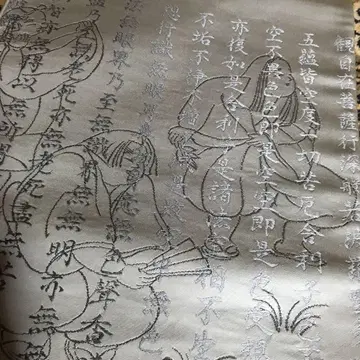 觀自在菩薩行深般若波
五蘊皆空度一切苦厄舍利子
空不異色色即是空空即是色受想
亦復如是舍利子是諸法空相不生
不垢不淨不增不減是故空中無色
想行識無眼耳鼻舌身意無色聲香
無眼界乃至無意識界無無明亦無
無老死亦無老死盡無苦
智亦無得以無所得